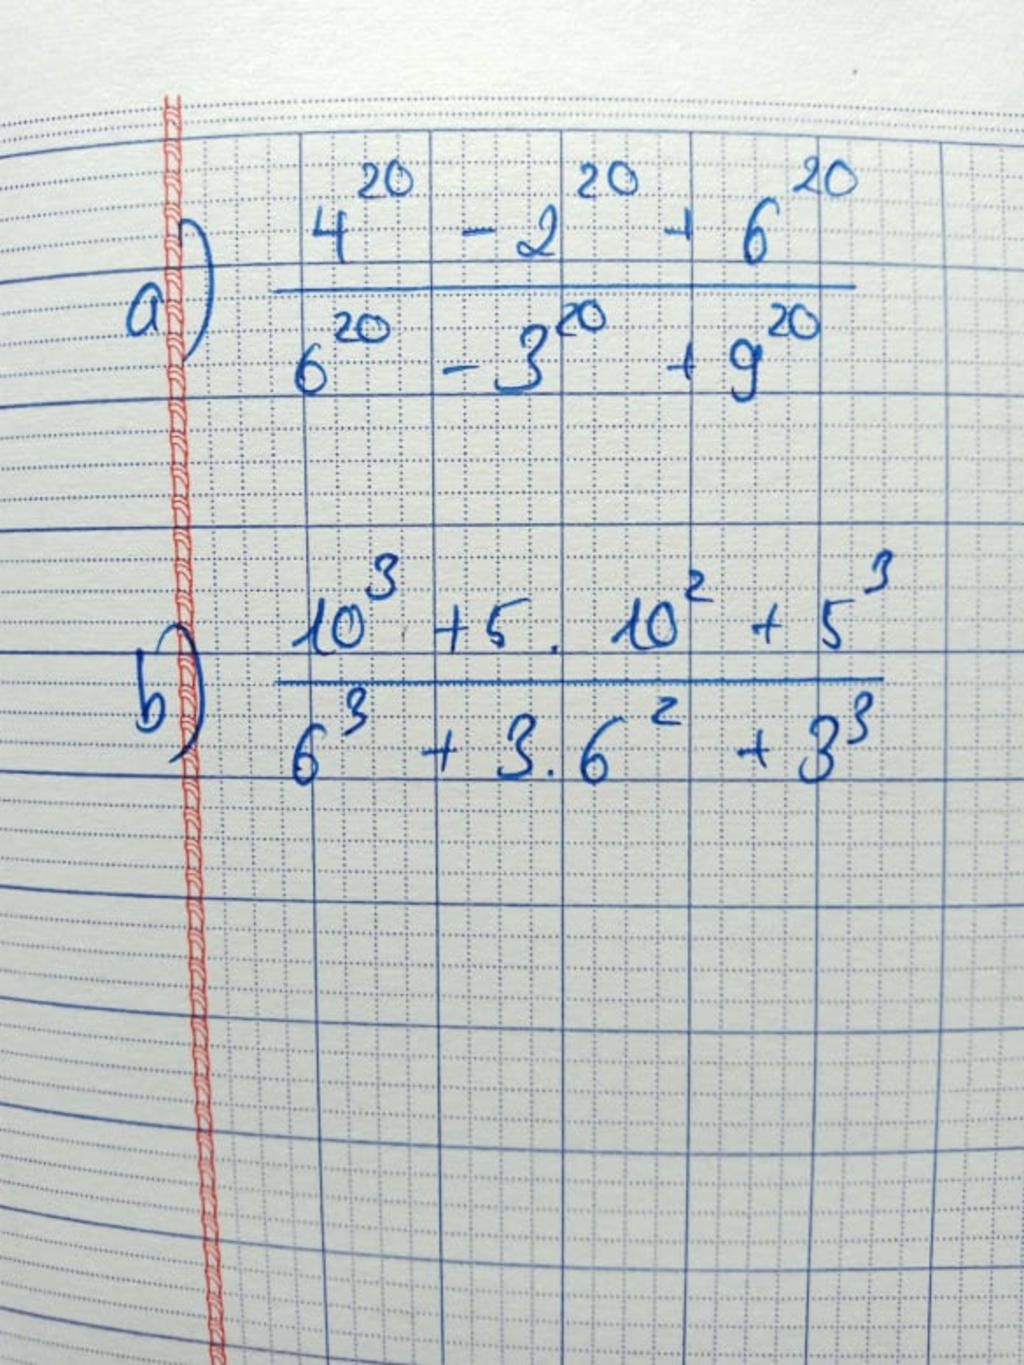 a) 4^20 - 2^20 + 6^20
6^20 - 3^20 + 9^20
b) 10^3 + 5. 10^2 + 5^3
6^3 + 3. 6^2 + 3^3